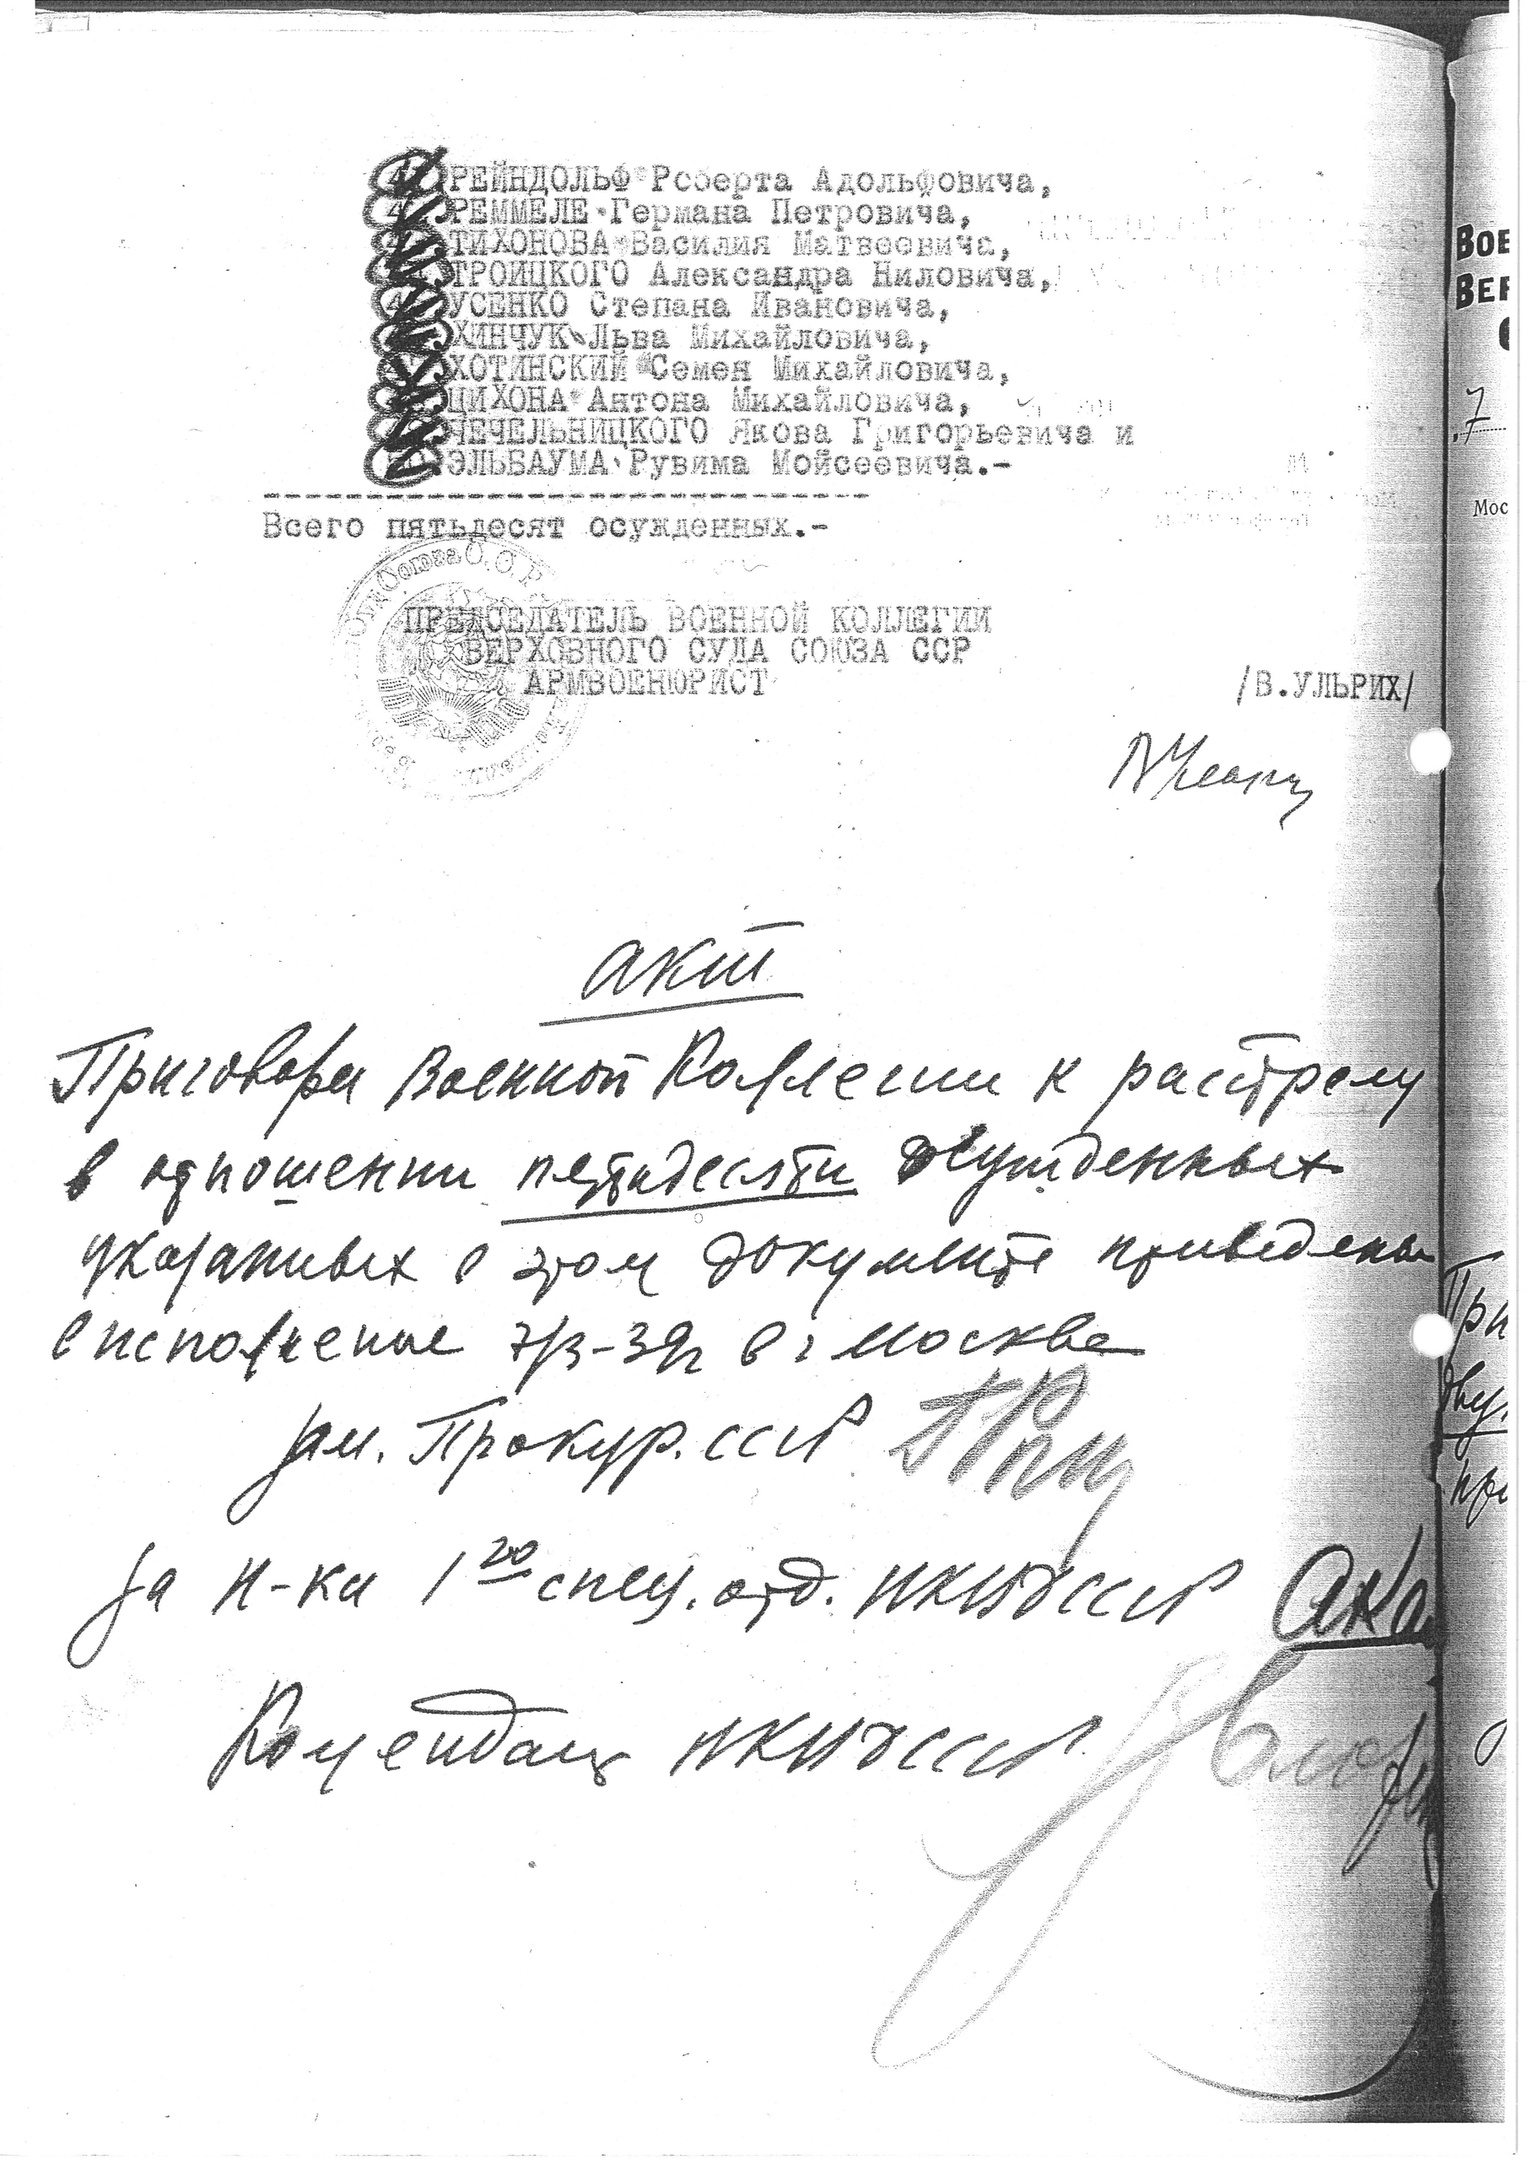 РЕЙНДОЛЬФ Роберта Адольфовича,
РЕММЕЛЕ Германа Петровича,
ТИХОНОВА Василия Матвеевича,
ТРОИЦКОГО Александра Ниловича,
УСЕНКО Степана Ивановича,
ХИНЧУК Льва Михайловича,
ХОТИНСКИЙ Семен Михайловича,
ЦИХОНА Антона Михайловича,
ЧЕЧЕЛЬНИЦКОГО Якова Григорьевича и
ЭЛЬБАУМА Рувима Мойсеевича.-
Всего пятьдесят осужденных.-
Союза С.С.Р
ПРЕДСЕДАТЕЛЬ ВОЕННОЙ КОЛЛЕГИИ
ВЕРХОВНОГО СУДА СОЮЗА ССР
АРМВОЕНЮРИСТ
/В.УЛЬРИХ/
Акт
Приговора Военной Коллегии к расстрелу
в отношении пятидесяти осужденных
указанных в этом документе приведены
в исполнение 7/3-39г в г Москве
зам. Прокур. ССР
За Н-ка 1го спец. отд. НКВД СССР
Комендант НКВД СССР
ВОЕ
ВЕР
7
Мос
При